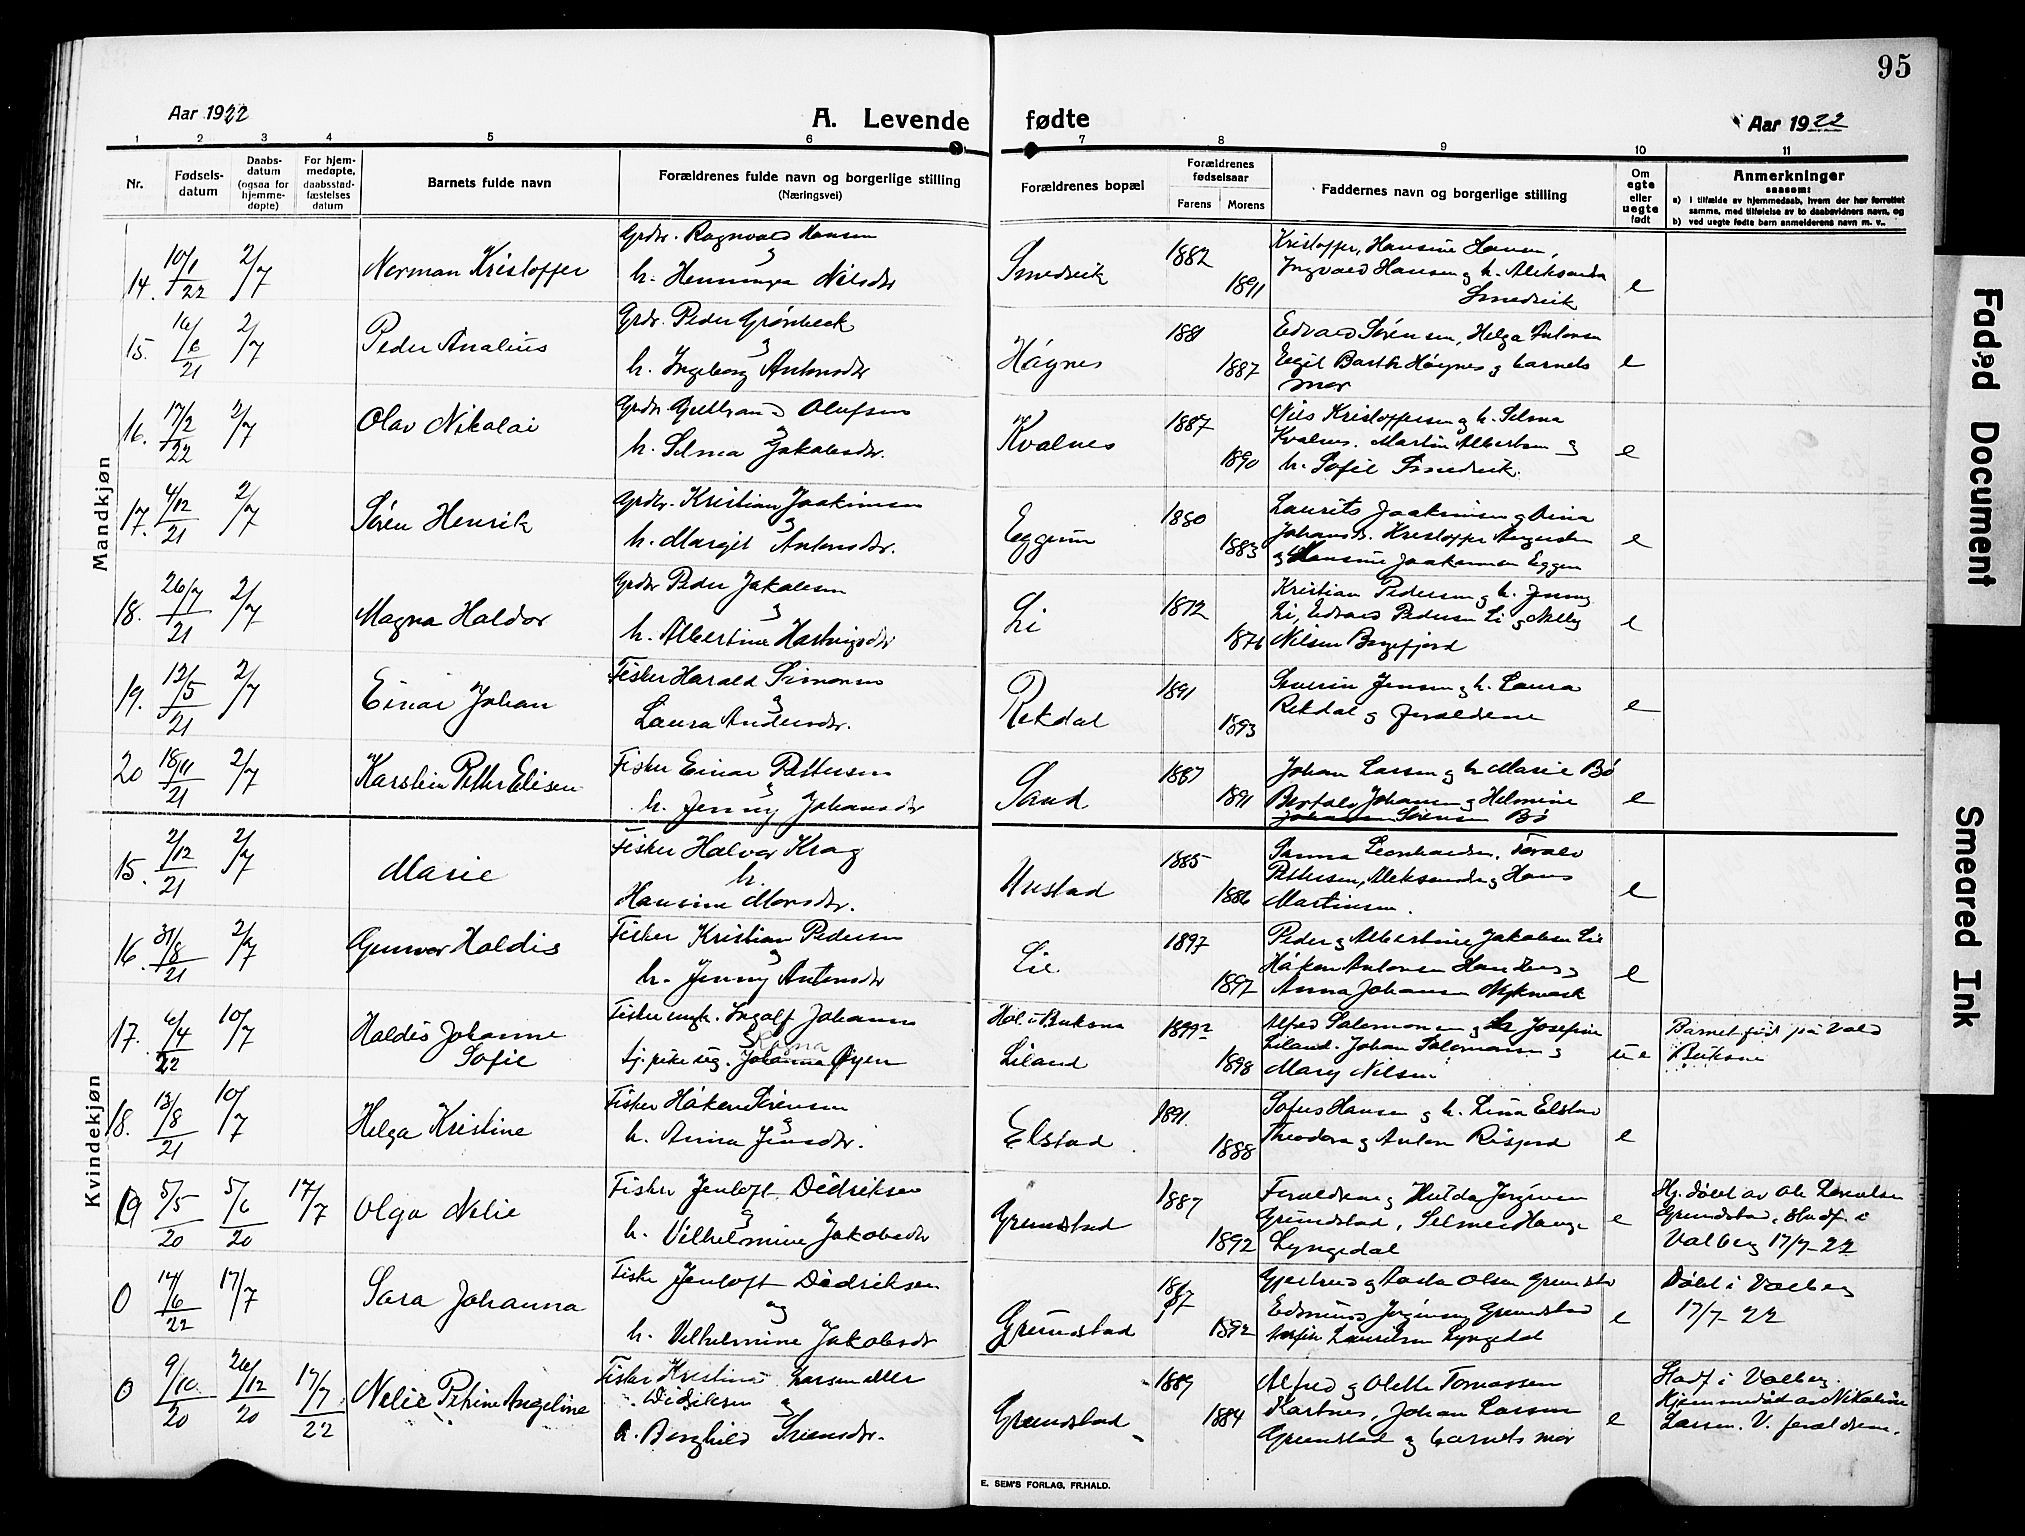 95
Aar 1922
A. Levende fødte
Aar 1922
1 2 3 4 5 6 7 8 9 10 11
Nr.
Fødsels-
datum
Daabs-
datum
(ogsaa for
hjemme-
døpte)
For hjem-
medøpte,
daabsstad-
fæstelses
datum
Barnets fulde navn
Forældrenes fulde navn og borgerlige stilling
(Næringsvei)
Forældrenes bopæl
Forældrenes
fødselsaar
Farens Morens
Faddernes navn og borgerlige stilling
Om
egte
eller
uegte
født
Anmerkninger
saasom:
a) i tilfælde av hjemmedaab, hvem der har forrettet
samme, med tilføielse av to daabsvidners navn, og
b) ved uegte fødte barn anmelderens navn m. v..
Mandkjøn
14. 10/1 22 2/7 Norman Kristoffer
Grdr. Ragnvald Hansen
og
h. Henninga Nilsdtr
Smedvik 1882 1891
Kristoffer, Hansine Hansen,
Ingvald Hansen og h. Aleksandra
Smedvik
e
15. 16/6 21 2/7 Peder Analius
Grdr. Peder Grønbeck
og
h. Ingeborg Antonsdtr
Høynes 1881 1887
Edvard Sørensen, Helga Antonsen
Eegil Barth Høynes og barnets
mor
e
16. 17/2 22 2/7 Olav Nikolai
Grdr Gulbrand Olufsen
og
h. Selma Jakobsdtr.
Kvalnes 1887 1890
Nils Kristoffersen og h. Selma
Kvalnes. Martin Albertsen og
h. Sofie Smedvik.
e
17. 4/12 21 2/7 Søren Henrik
Grdr. Kristian Joakimsen
og
h. Margit Antonsdtr.
Eggum 1880 1883
Laurits Joakimsen og Dina
Johansdtr. Kristoffer
og Hansine Joakimsen Eggum
e
18. 26/7 21 2/7 Magna Haldor
Grdr Peder Jakobsen
og
h. Albertine Hartvigsdtr
Li 1872 1876
Kristian Pedersen og h. Jenny
Li, Edvard Pedersen Li og Nelly
Nilsen Borgefjord
e
19. 12/5 21 2/7 Einar Johan
Fisker Harald Simonsen
og
Laura Andersdtr.
Rekdal 1891 1893
Severin Jensen og h. Laura
Rekdal og foreldrene
e
20 18/11 21 2/7 Karsten Petter Elisen
Fisker Einar Pettersen
og
h. Jenny Johansdtr
Sand 1887 1891
Johan Larsen og h Marie Bø
Bertalv Johansen og Helmine
Johansen Sørensen Bø
e
Kvindekjøn
15. 2/12 21 2/7 Marie
Fisker Halvor Krog
h.
Hansine Monsdtr.
Ustad 1885 1886
Sanna Leonhardsen, Torald
Pettersen, Aleksandra og Hans
Martinsen.
e
16. 31/8 21 2/7 Gunvor Haldis
Fisker Kristian Pedersen
og
h. Jenny Antonsdtr
Lie 1897 1897
Peder og Albertine Jakobsen Lie
Håkon Antonsen
Anna Johansen Nykmark
e
17. 6/4 22 10/7 Haldis Johanne
Sofie
Fisker ungk. Ingolf Johansen
og Ragna
tj. pike ug. Johanna Øyen
Hol i Buksnes
Liland 1899 1898
Alfred Salomonsen og h Josefine
Liland. Johan Salomonsen og
Mary Nilsen
ue
Barnet født på Vold
Buksnes
18. 13/8 21 10/7 Helga Kristine
Fisker Håken Sørensen
og
h. Anna Jensdtr.
Elstad 1891. 1888
Sofus Hansen og h. Lina Elstad
Theodora og Anton Risjord
e
19 5/5 20 5/6 20 17/7 Olga Nelie
Fisker Jentoft Didriksen
og
h. Vilhelmine Jakobsdtr
Grundstad 1887 1892
Foreldrene og Hulda Jørgensen
Grundstad, Selmer Hauge
Lyngedal
e
Hj. døbt av Ole Lorentsen
Grundstad. Stadf. i
Valberg 17/7-22
0 14/6 22 17/7 Sara Johanna
Fisker Jentoft Didriksen
og
h. Vilhelmine Jakobsdtr
Grundstad 1887 1892
Gjertrud og Aasta Olsen Grundstad
Edmund Jørgensen Grundstad
Lauritsen Lyngedal
e
Døbt i Valberg
17/7-22
0 9/10. 20 26/12 20 17/7 22 Nelie Petrine Angeline
Fisker Kristian Larsen eller
Didriksen og
h. Borghild Sørensdtr.
Grundstad 1889 1884
Alfred og Olette Tomassen
Hartnes, Johan Larsen
Grundstad og barnets mor
e
Stadf i Valberg.
Hjemmedøbt av Nikoline
Larsen. V. foreldrene.
E. SEM'S FORLAG, FR.HALD.
Faded Document
Smeared Ink